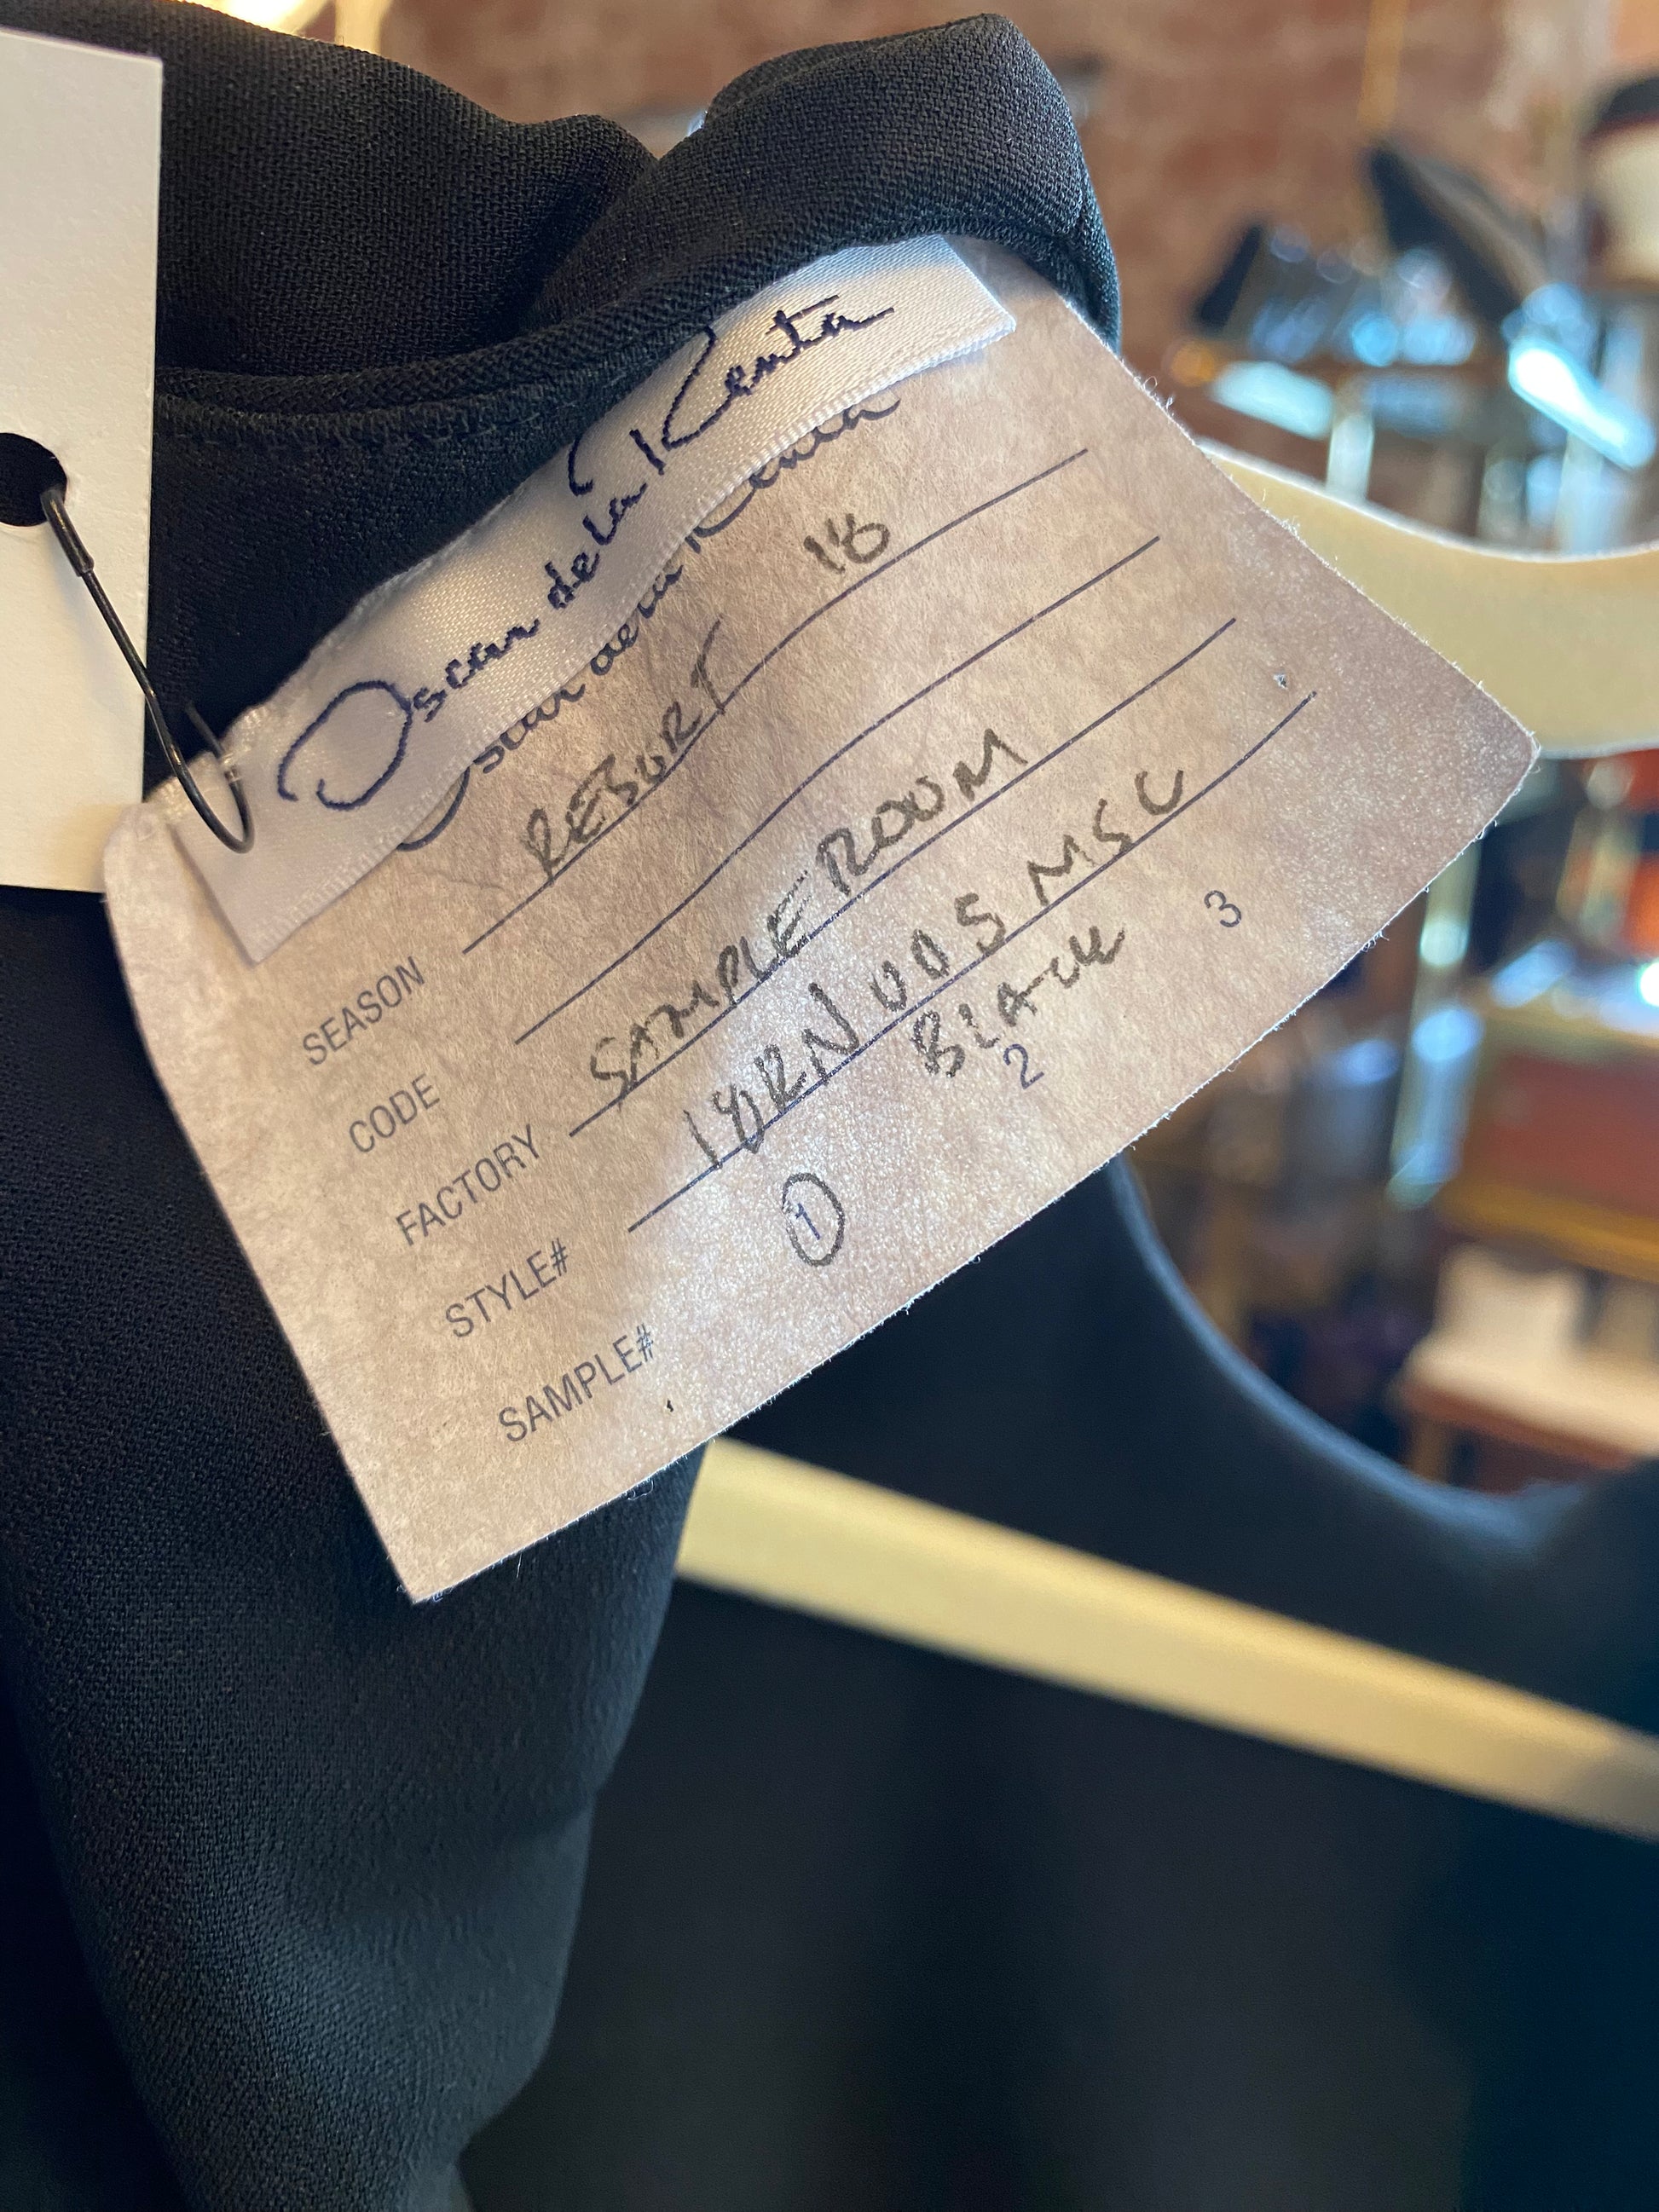 Oscar de la Renta
Oscar de la Renta
SEASON RESORT 18
CODE
FACTORY SAMPLE ROOM
STYLE# 18RN005 MSC
BLACK
SAMPLE# 1 2 3